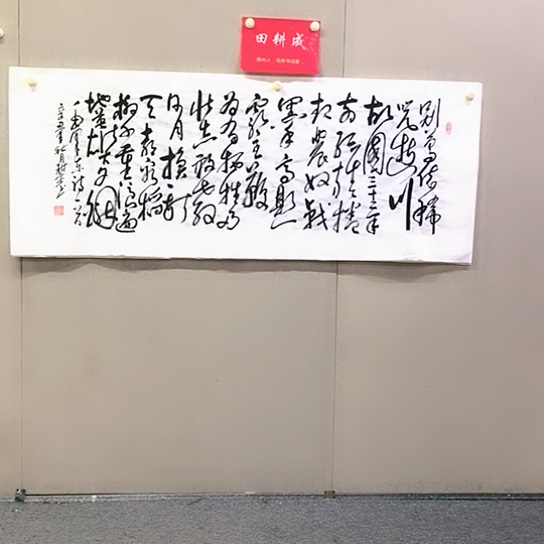 田耕成
别梦依稀
咒逝川
故園三十二年
前红旗卷
起農奴戟
黑手高悬
霸主鞭
为有牺牲多
壮志敢教
日月换新
天喜看稻
菽千重浪遍
地英雄下夕烟
毛泽东诗一首